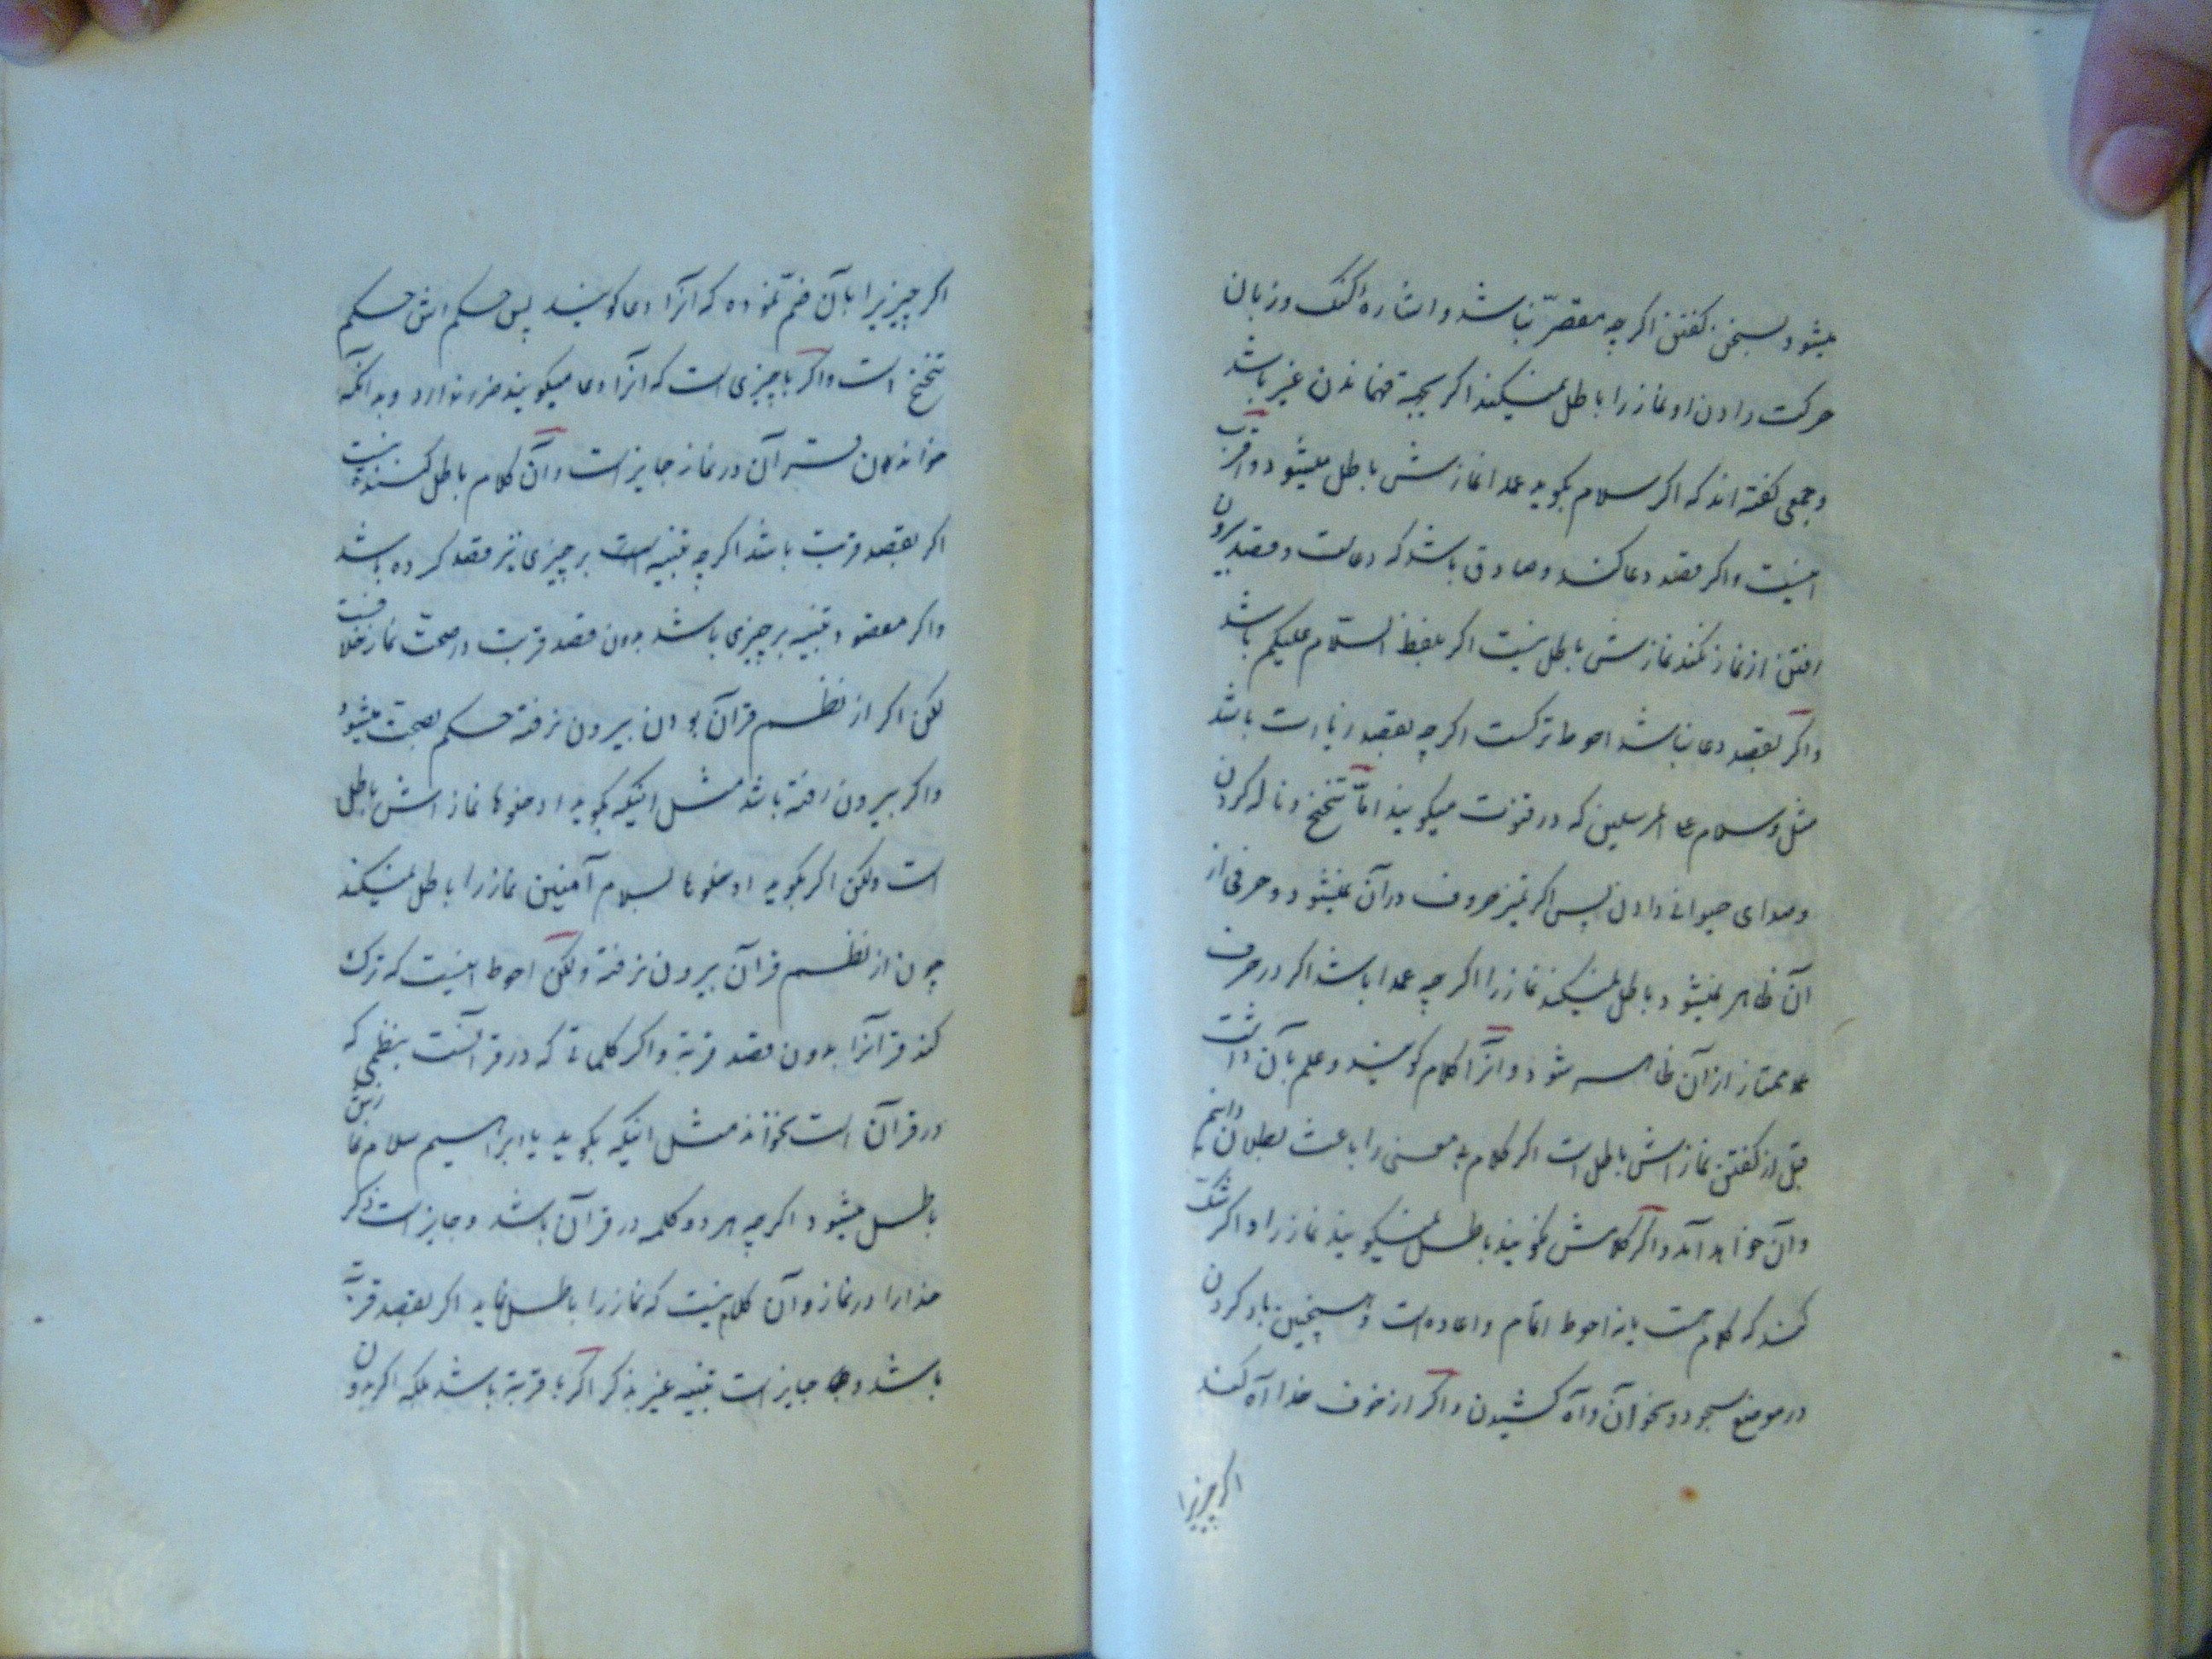 میشود بسخن گفتن اگرچه مقصّر نباشد و اشارهٔ گنگ و زبان
حرکت دادن او نماز را باطل نمیکند اگر بجهة فهماندن غیر باشد
و جمعی گفته اند که اگر سلام بگوید عمدا نمازش باطل میشود و اقرب
اینست و اگر قصد دعا کند و صادق باشد که دعاست و قصد بیرون
رفتن از نماز نکند نمازش باطل نیست اگر بلفظ السلام علیکم باشد
و اگر بقصد دعا نباشد احوط ترکست اگرچه بقصد زیارت باشد
مثل و سلام علی المرسلین که در قنوت میگویند امّا تنحنح و ناله کردن
و صدای حیوانی دادن پس اگر تمیز حروف در آن نمیشود و حرفی از
آن ظاهر نمیشود باطل نمیکند نماز را اگرچه عمدا باشد اگر دو حرف
ممتاز از آن ظاهر شود و آنرا کلام گویند و علم بآن داشت
قبل از گفتن نمازش باطل است اگر کلام بی معنی را باعث بطلان دانیم
و آن خواهد آمد و اگر کلامش نگویند باطل نمیگویند نماز را و اگر شک
کند که کلام است یا نه احوط اتمام و اعاده است و همچنین باد کردن
در موضع سجود و نحو آن و آه کشیدن و اگر از خوف خدا آه کند
اگر چیزیرا
اگر چیزیرا بآن ضمّ نموده که آنرا دعا گویند پس حکم اش حکم
تنحنح است و اگر با چیزی است که آنرا دعا میگویند ضرر ندارد و بدانکه
خواندن قرآن در نماز جایز است و آن کلام باطل کننده نیست
اگر بقصد قربت باشد اگرچه تنبیه است بر چیزی نیز قصد کرده باشد
و اگر مقصود تنبیه بر چیزی باشد بدون قصد قربت در صحّت نماز خلافست
لکن اگر از نظم قرآن بودن بیرون نرفته حکم بصحّت میشود
و اگر بیرون رفته باشد مثل اینکه بگوید ادخلوها نمازاش باطل
است ولکن اگر بگوید ادخلوها بسلام آمنین نماز را باطل نمیکند
چون از نظم قرآن بیرون نرفته ولکن احوط اینست که ترک
کند قرآنرا بدون قصد قربة و اگر کلماتی که در قرآنست بنظمی که
در قرآن است نخواند مثل اینکه بگوید یا ابراهیم سلام نمازش
باطل میشود اگرچه هر دو کلمه در قرآن باشد و جایز است ذکر
خدا را در نماز و آن کلام نیست که نماز را باطل نماید اگر بقصد قربة
باشد و جایز است تنبیه غیر بذکر اگر با قربة باشد بلکه اگر بدون